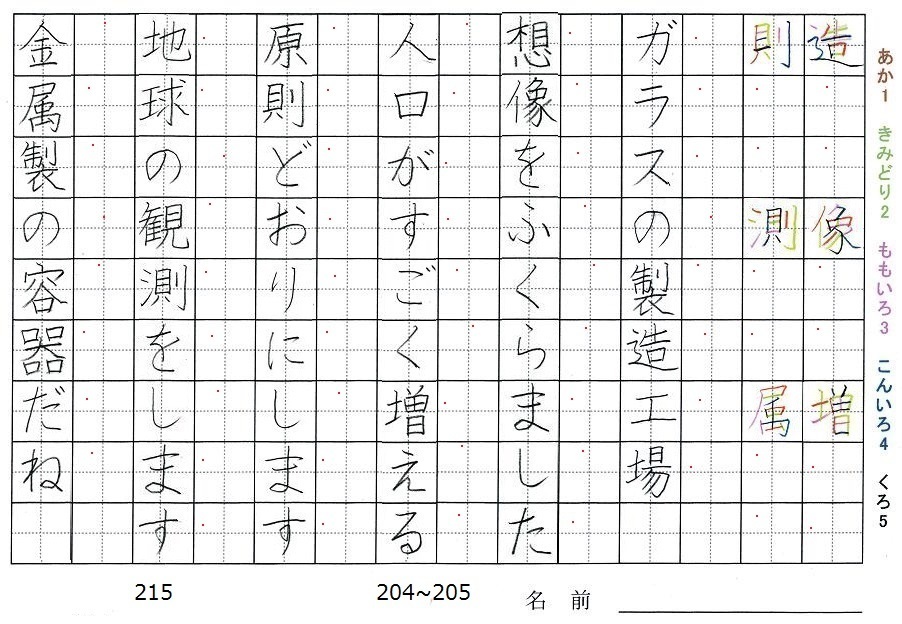 あか1 きみどり2 ももいろ3 こんいろ4 くろ5
造 像 増
則 測 属
ガラスの製造工場
想像をふくらました
人口がすごく増える
原則どおりにします
地球の観測をします
金属製の容器だね
215
204~205
名前